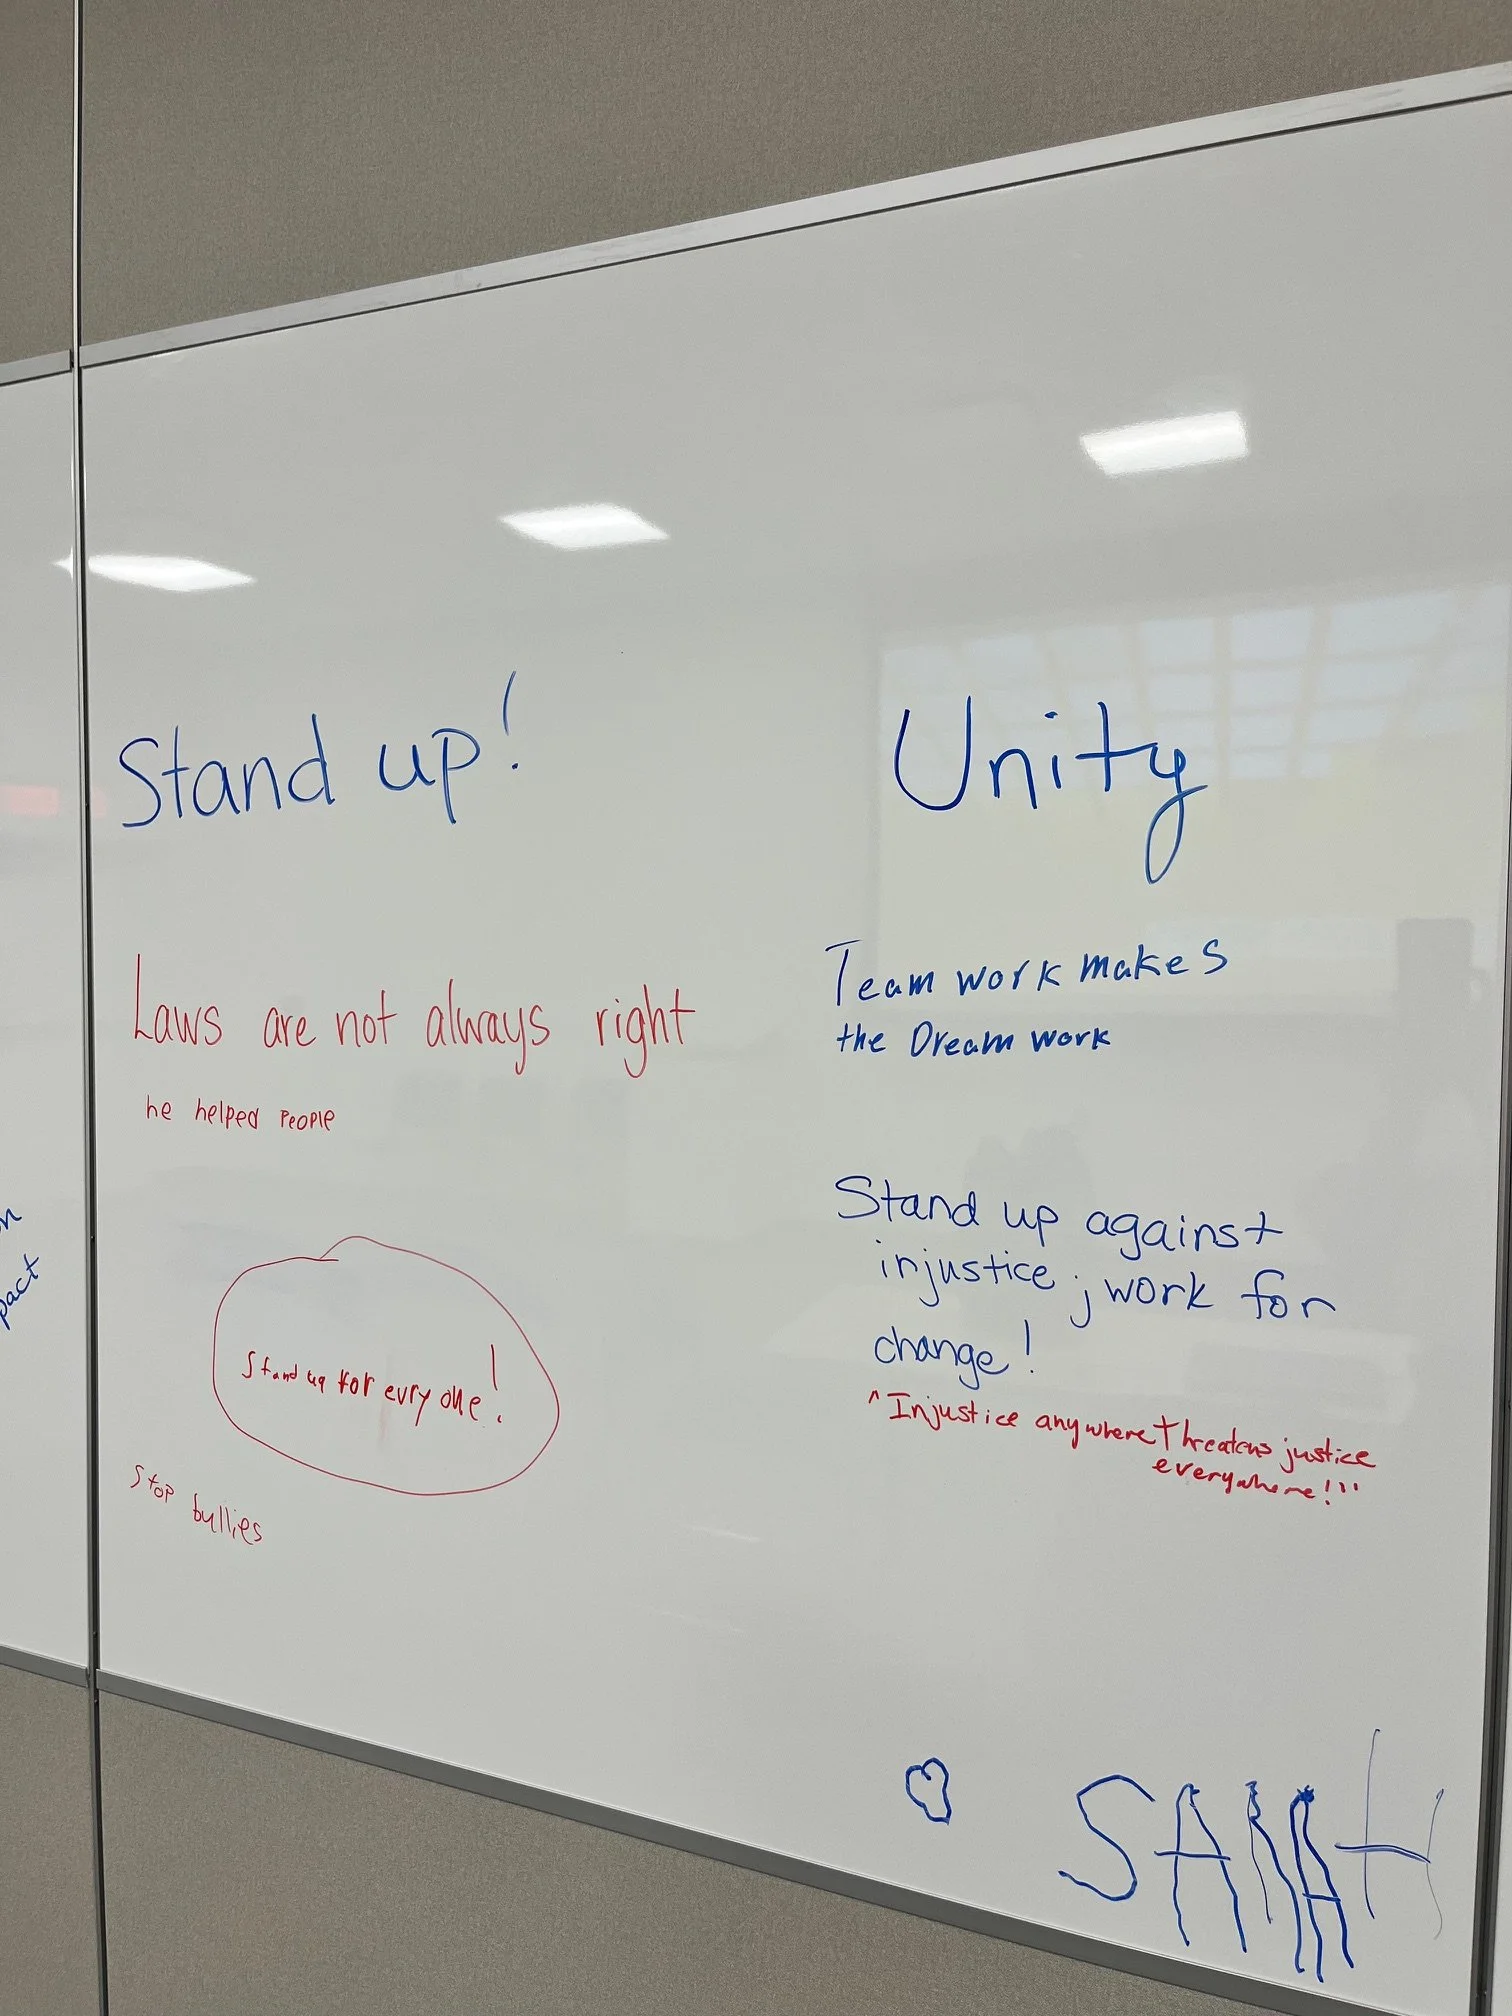 Stand up!
Laws are not always right
he helped people
Stand up for evry one!
Stop bullies
Unity
Team work makes
the Dream work
Stand up against
injustice ; work for
change!
"Injustice anywhere threatens justice
everywhere!"
SARAH
pact